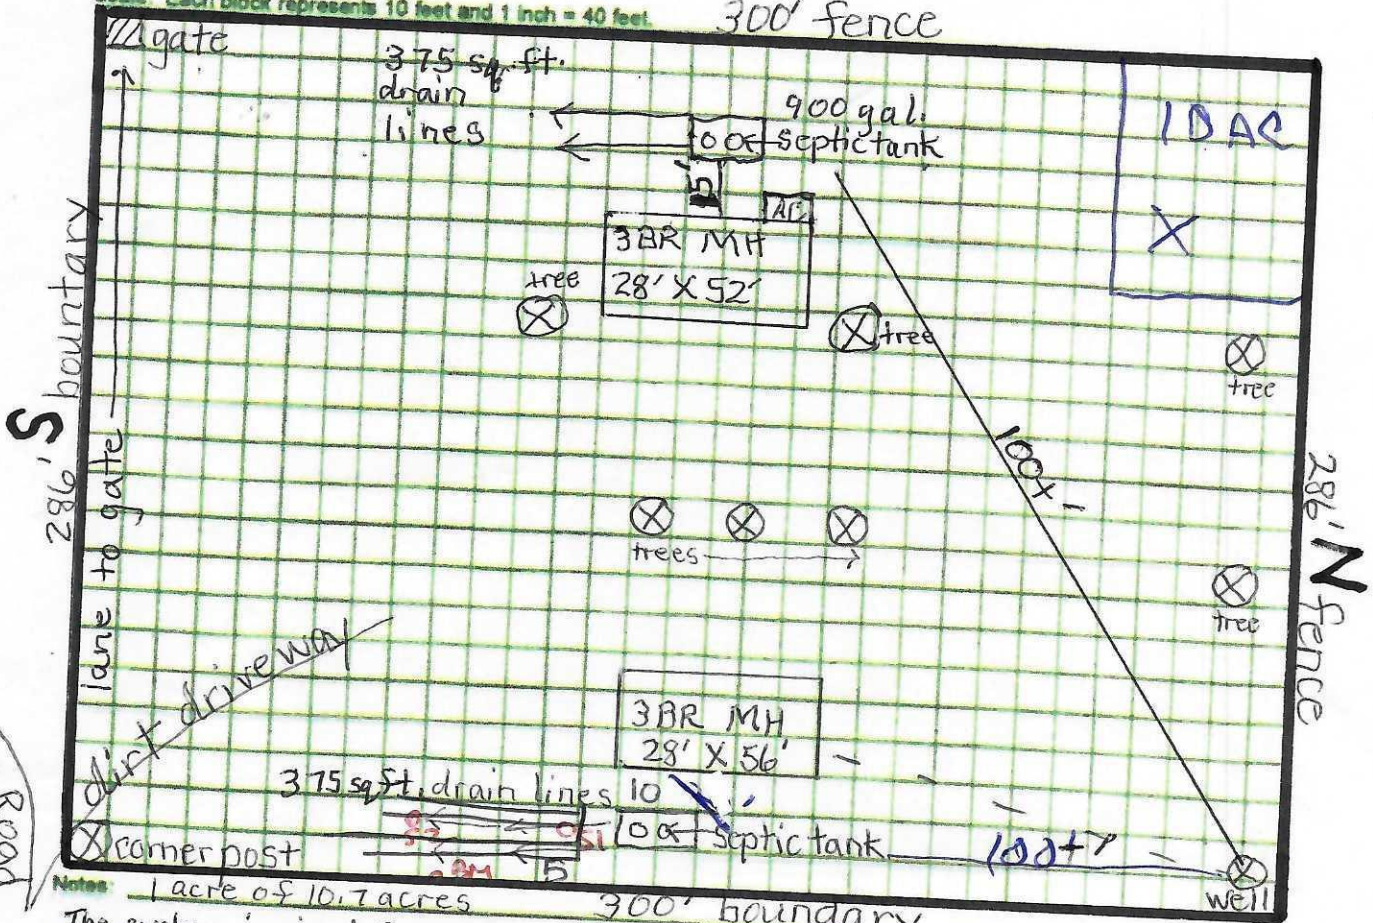 Each block represents 10 feet and 1 inch = 40 feet.
300' fence
gate
375 sq. ft.
drain
lines
900 gal.
septic tank
15'
AC
3BR MH
28' X 52'
tree
tree
1 D AC
X
tree
286' S bountary
lane to gate
100+'
286' N fence
trees
tree
dirt driveway
3BR MH
28' X 56'
375 sq ft. drain lines 10
septic tank
100+'
5
corner post
well
Road
Notes: 1 acre of 10.7 acres
300' boundary